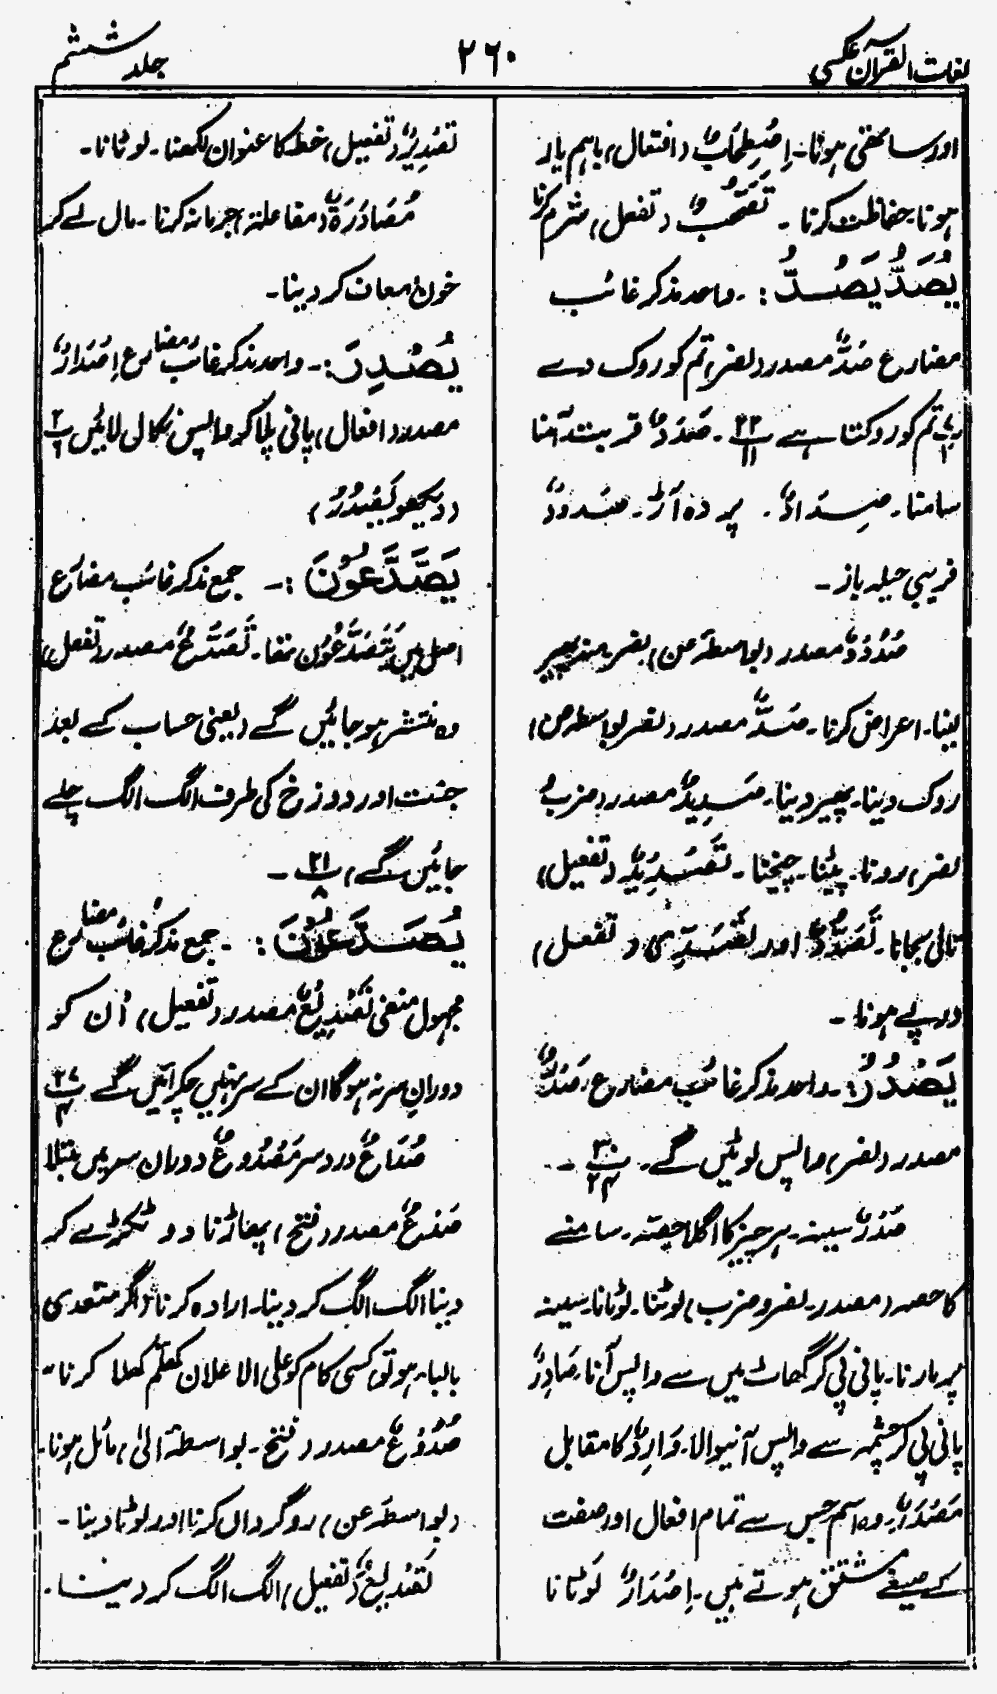 لغات القرآن عکسی
۲۶۰
جلد ششم
اور ساتھی ہونا۔ اِصْطِحَابٌ (افتعال) باہم یار
ہونا۔ حفاظت کرنا ۔ تَصَحُّبٌ (تفعل) شرم کرنا
یُصَدُّ یَصُدُّ :۔ واحد مذکر غائب
مضارع صَدٌّ مصدر (نصر) تم کو روک دے
تم کو روکتا ہے پ۲۲/۱۱ ۔ صَدَدٌ قریب۔ آمنا
سامنا۔ صِدَادٌ ۔ پردہ آڑ۔ صَدُودٌ
فریبی حیلہ باز ۔
صُدُوْدٌ مصدر (بواسطہ عن) بضر۔ منہ پھیر
لینا۔ اعراض کرنا ۔ صَدٌّ مصدر (نصر بواسطہ عن)
روک دینا۔ پھیر دینا۔ صَدِیدٌ مصدر (ضرب و
نصر) رونا۔ پیٹنا۔ چیخنا ۔ تَصْدِیْدٌ (تفعیل)
تالی بجانا ۔ تَصَدُّدٌ اور تَصَدِّی (تفعل)
درپے ہونا ۔
یَصْدُرُ :۔ واحد مذکر غائب مضارع، صَدْرٌ
مصدر (نصر) واپس لوٹیں گے۔ پ۳۰/۲۴ ۔
صَدْرٌ سینہ ۔ ہر چیز کا اگلا حصّہ ۔ سامنے
کا حصہ (مصدر۔ نصر و ضرب) لوٹنا۔ لوٹانا۔ سینہ
پر مارنا۔ پانی پی کر گھاٹ میں سے واپس آنا۔ صَادِرٌ
پانی پی کر چشمہ سے واپس آنیوالا۔ وَارِدٌ کا مقابل
مَصْدَرٌ۔ وہ اسم جس سے تمام افعال اور صفت
کے صیغے مشتق ہوتے ہیں۔ اِصْدَارٌ لوٹانا
تَصْدِیْرٌ (تفعیل) خط کا عنوان لکھنا ۔ لوٹانا ۔
مُصَادَرَۃٌ (مفاعلۃ) جرمانہ کرنا ۔ مال لے کر
خون معاف کر دینا ۔
یُصْدِرَ :۔ واحد مذکر غائب مضارع اِصْدَارٌ
مصدر (افعال) پانی پلا کر واپس نکال لائیں پ۲۰/۶
(دیکھو یَصْدُرُ)
یَصَّدَّعُوْنَ :۔ جمع مذکر غائب مضارع
اصل میں یَتَصَدَّعُوْن تھا ۔ تَصَدُّعٌ مصدر (تفعل)
وہ منتشر ہو جائیں گے (یعنی حساب کے بعد
جنت اور دوزخ کی طرف الگ الگ چلے
جائیں گے) پ۲۱/۸ ۔
یُصَدَّعُوْنَ :۔ جمع مذکر غائب مضارع
مجہول منفی تَصْدِیْعٌ مصدر (تفعیل) اُن کو
دورانِ سر نہ ہوگا ان کے سر نہیں چکرائیں گے پ۲۷/۱۴
صُدَاعٌ دردِ سر مَصْدُوْعٌ دوران سر میں مبتلا
صَدْعٌ مصدر (فتح) پھاڑنا دو ٹکڑے کر
دینا۔ الگ الگ کر دینا۔ ارادہ کرنا (اگر متعدی
بالباء ہو تو) کسی کام کو علی الاعلان کھلم کھلا کرنا۔
صُدُوْعٌ مصدر (فتح ۔ بواسطۃ الیٰ) مائل ہونا۔
(بواسطہ عن) روگرداں کرنا اور لوٹا دینا ۔
تَصْدِیْعٌ (تفعیل) الگ الگ کر دینا ۔